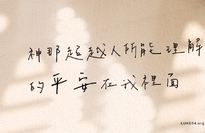 神那超越人所能理解
的平安在我裡面
LUKE54.org